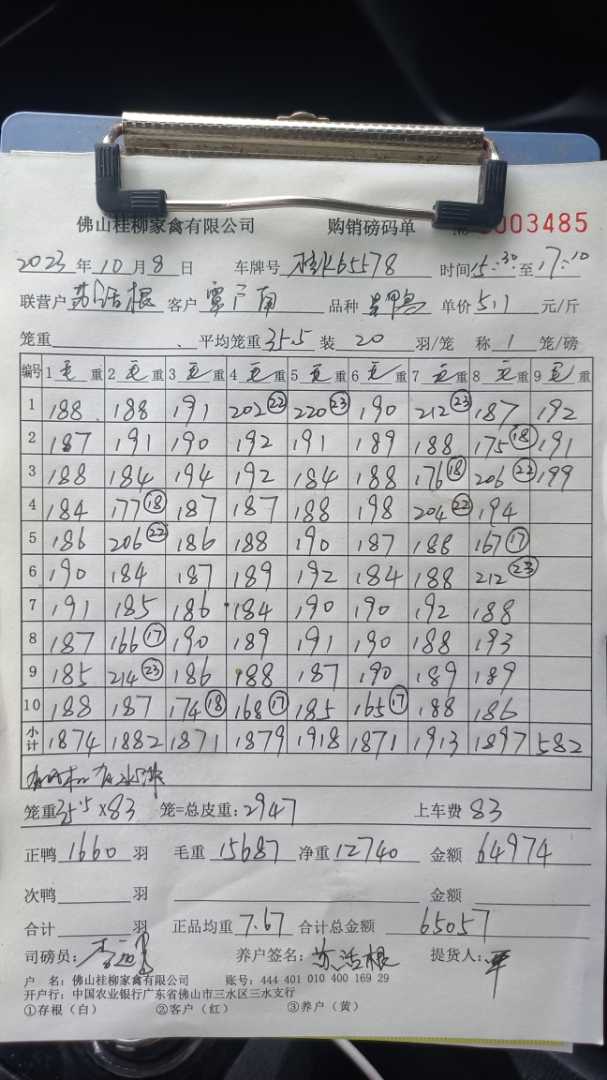 佛山桂柳家禽有限公司 购销磅码单 № 0003485
2023年10月8日 车牌号 65578 时间15:30至17:10
联营户 苏活根 客户 覃广南 品种 单价5.1元/斤
笼重 平均笼重35.5装20羽/笼 称1笼/磅
编号 1毛重 2毛重 3毛重 4毛重 5毛重 6毛重 7毛重 8毛重 9毛重
1 188 188 191 202㉒ 220㉓ 190 212㉓ 187 192
2 187 191 190 192 191 189 188 175⑱ 191
3 188 184 194 192 184 188 176⑱ 206㉒ 199
4 184 177⑱ 187 187 188 198 204㉒ 194
5 186 206㉒ 186 188 190 187 188 167⑰
6 190 184 187 189 192 184 188 212㉓
7 191 185 186 184 190 190 192 188
8 187 166⑰ 190 189 191 190 188 193
9 185 214㉓ 186 188 187 190 189 189
10 188 187 174⑱ 168⑰ 185 165⑰ 188 186
小计 1874 1882 1871 1879 1918 1871 1913 1897 582
笼重35.5×83 笼=总皮重:2947 上车费 83
正鸭1660羽 毛重15687净重12740 金额64974
次鸭 羽 金额
合计 羽 正品均重7.67合计总金额 65057
司磅员: 养户签名:苏活根 提货人:
户 名:佛山桂柳家禽有限公司 账号:444 401 010 400 169 29
开户行:中国农业银行广东省佛山市三水区三水支行
①存根(白) ②客户(红) ③养户(黄)